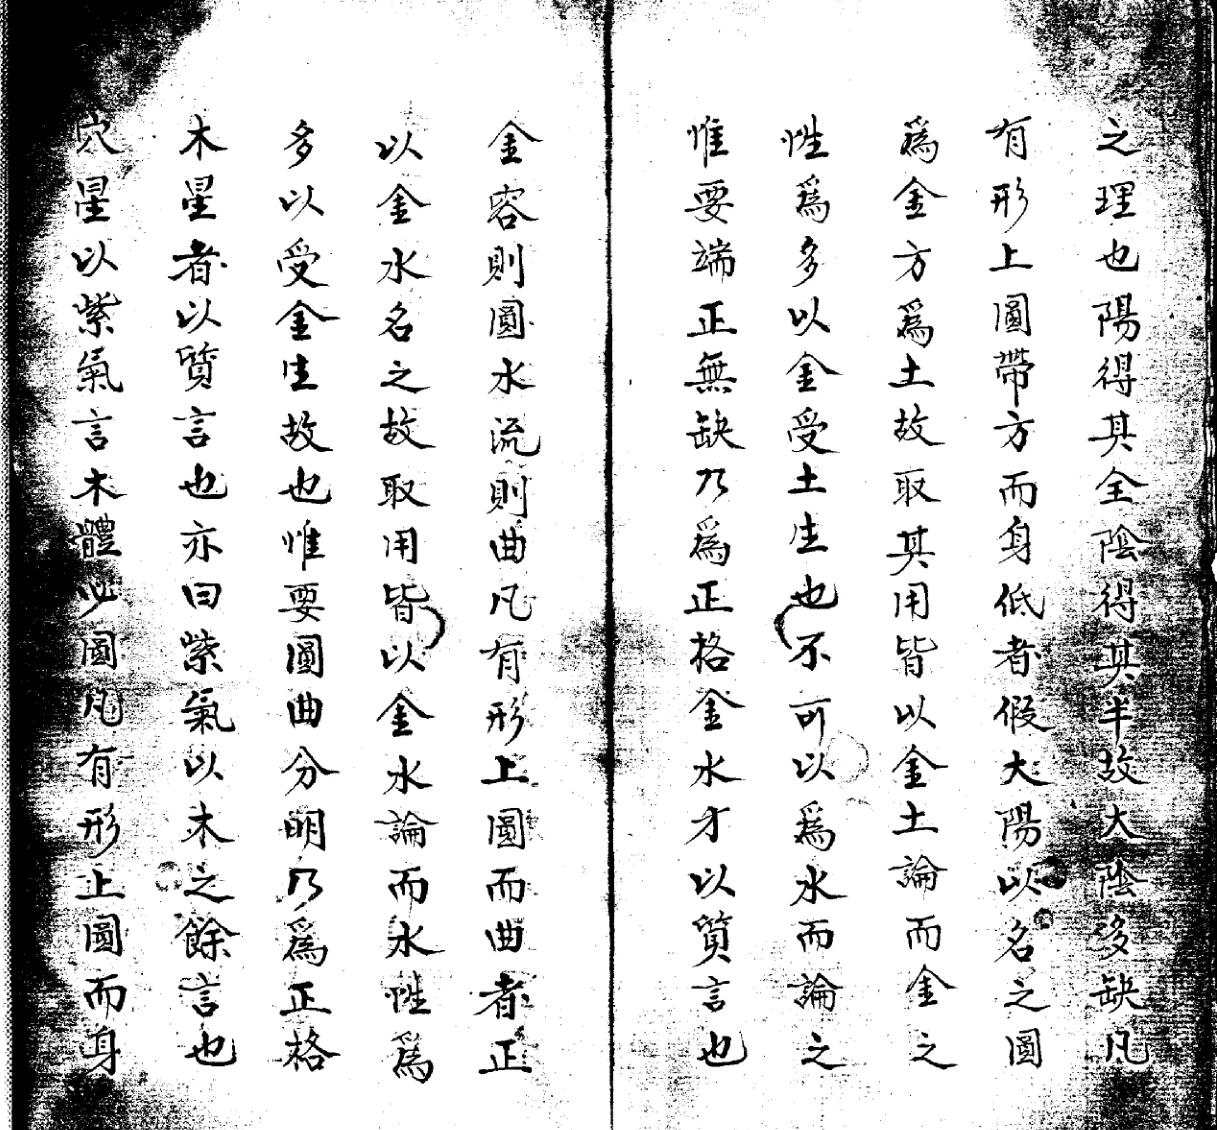 之理也陽得其全陰得其半故大陰多缺凡
有形上圓帶方而身低者假大陽以名之圓
爲金方爲土故取其用皆以金土論而金之
性爲多以金受土生也不可以爲水而論之
惟要端正無缺乃爲正格金水才以質言也
金容則圓水流則曲凡有形上圓而曲者正
以金水名之故取用皆以金水論而水性爲
多以受金生故也惟要圓曲分明乃爲正格
木星者以質言也亦曰紫氣以木之餘言也
穴星以紫氣言木體必圓凡有形上圓而身